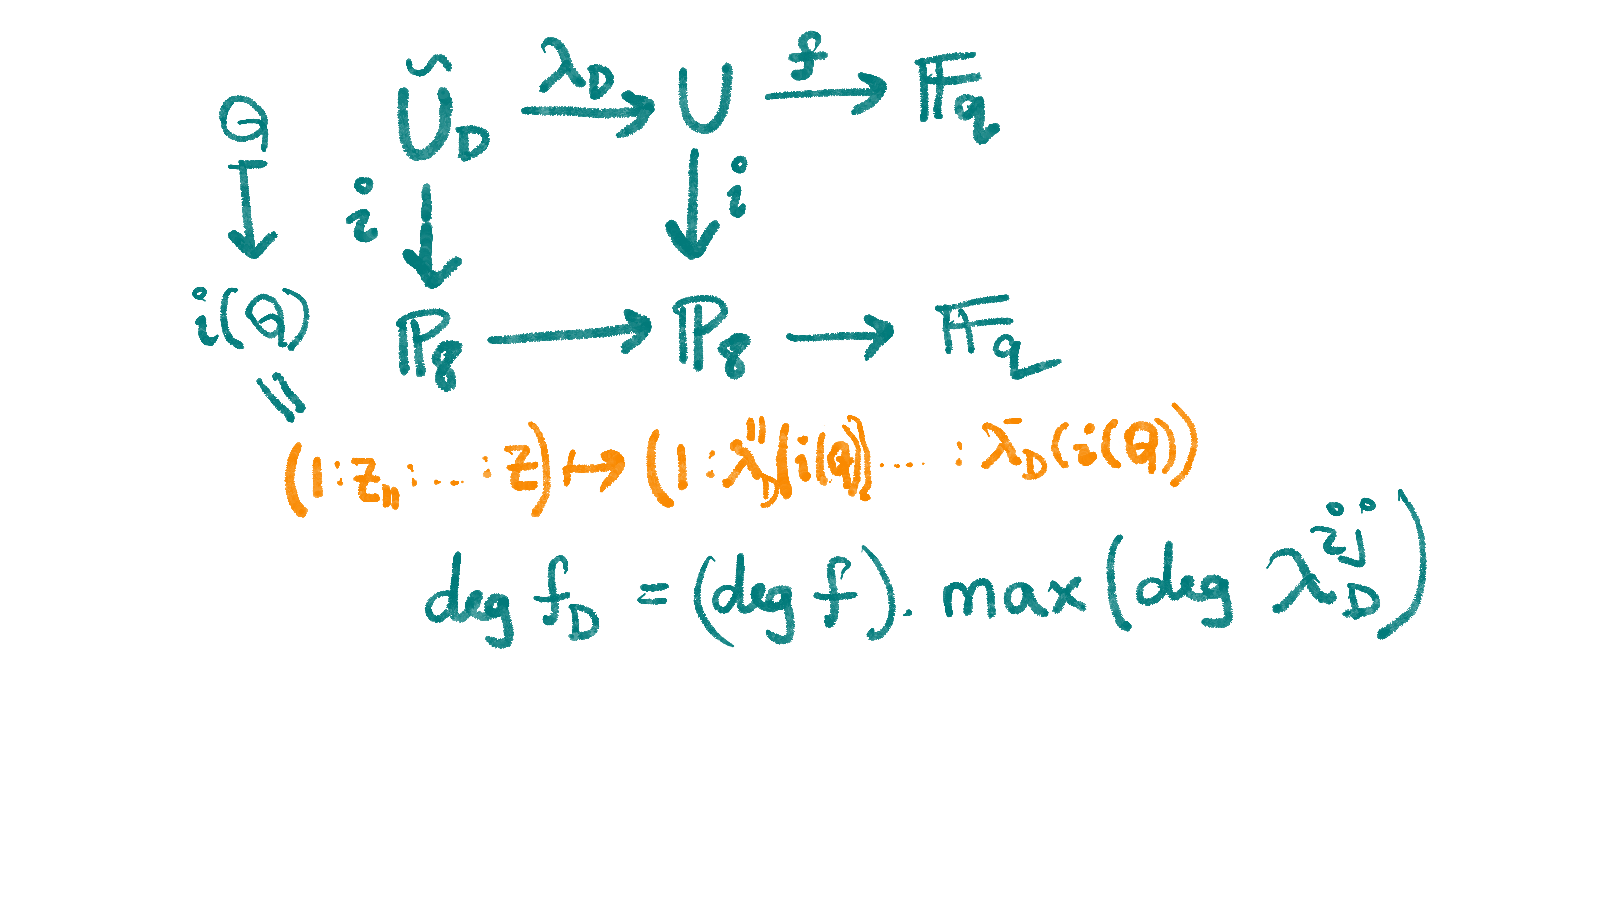 Q Ũ_D —λ_D→ U —f→ 𝔽_q
↧ i ↓ ↓ i
i(Q) ℙ_8 → ℙ_8 → 𝔽_q
=
(1:z_11: .... :z) ↦ (1:λ_D^11(i(Q)) .... :λ_D^-(i(Q)))
deg f_D = (deg f). max(deg λ_D^ij)